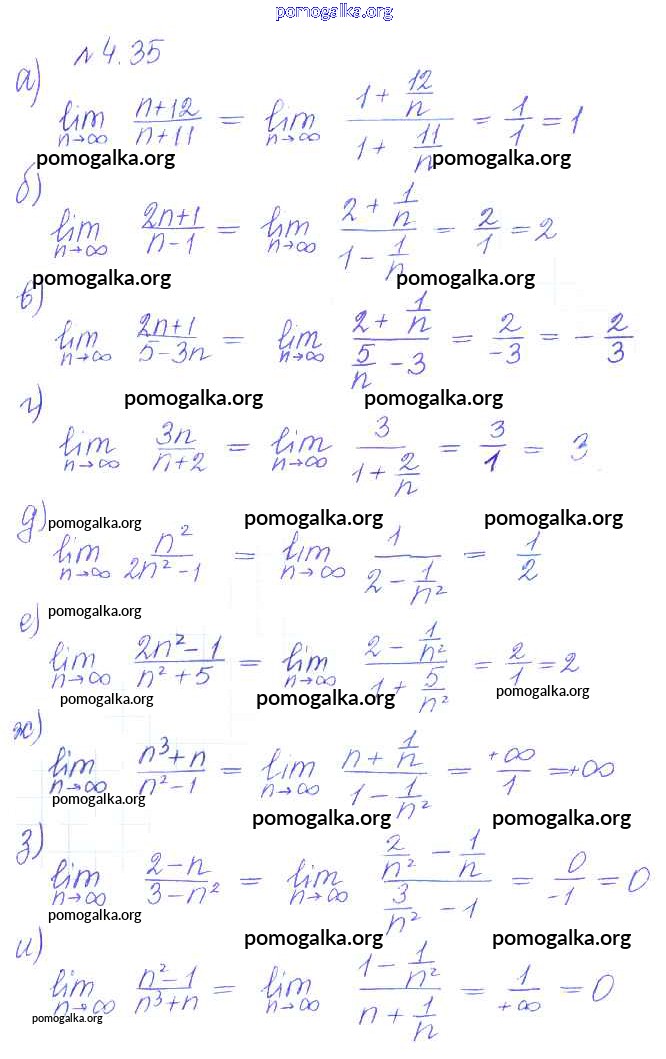 pomogalka.org
№4.35
а)
lim n→∞ (n+12)/(n+11) = lim n→∞ (1 + 12/n)/(1 + 11/n) = 1/1 = 1
pomogalka.org pomogalka.org
б)
lim n→∞ (2n+1)/(n-1) = lim n→∞ (2 + 1/n)/(1 - 1/n) = 2/1 = 2
pomogalka.org pomogalka.org
в)
lim n→∞ (2n+1)/(5-3n) = lim n→∞ (2 + 1/n)/(5/n - 3) = 2/-3 = - 2/3
pomogalka.org pomogalka.org
г)
lim n→∞ 3n/(n+2) = lim n→∞ 3/(1 + 2/n) = 3/1 = 3
д)
pomogalka.org pomogalka.org pomogalka.org
lim n→∞ n²/(2n²-1) = lim n→∞ 1/(2 - 1/n²) = 1/2
pomogalka.org
е)
lim n→∞ (2n²-1)/(n²+5) = lim n→∞ (2 - 1/n²)/(1 + 5/n²) = 2/1 = 2
pomogalka.org pomogalka.org pomogalka.org
ж)
lim n→∞ (n³+n)/(n²-1) = lim n→∞ (n + 1/n)/(1 - 1/n²) = +∞/1 = +∞
pomogalka.org pomogalka.org pomogalka.org
з)
lim n→∞ (2-n)/(3-n²) = lim n→∞ (2/n² - 1/n)/(3/n² - 1) = 0/-1 = 0
pomogalka.org pomogalka.org pomogalka.org
и)
lim n→∞ (n²-1)/(n³+n) = lim n→∞ (1 - 1/n²)/(n + 1/n) = 1/+∞ = 0
pomogalka.org